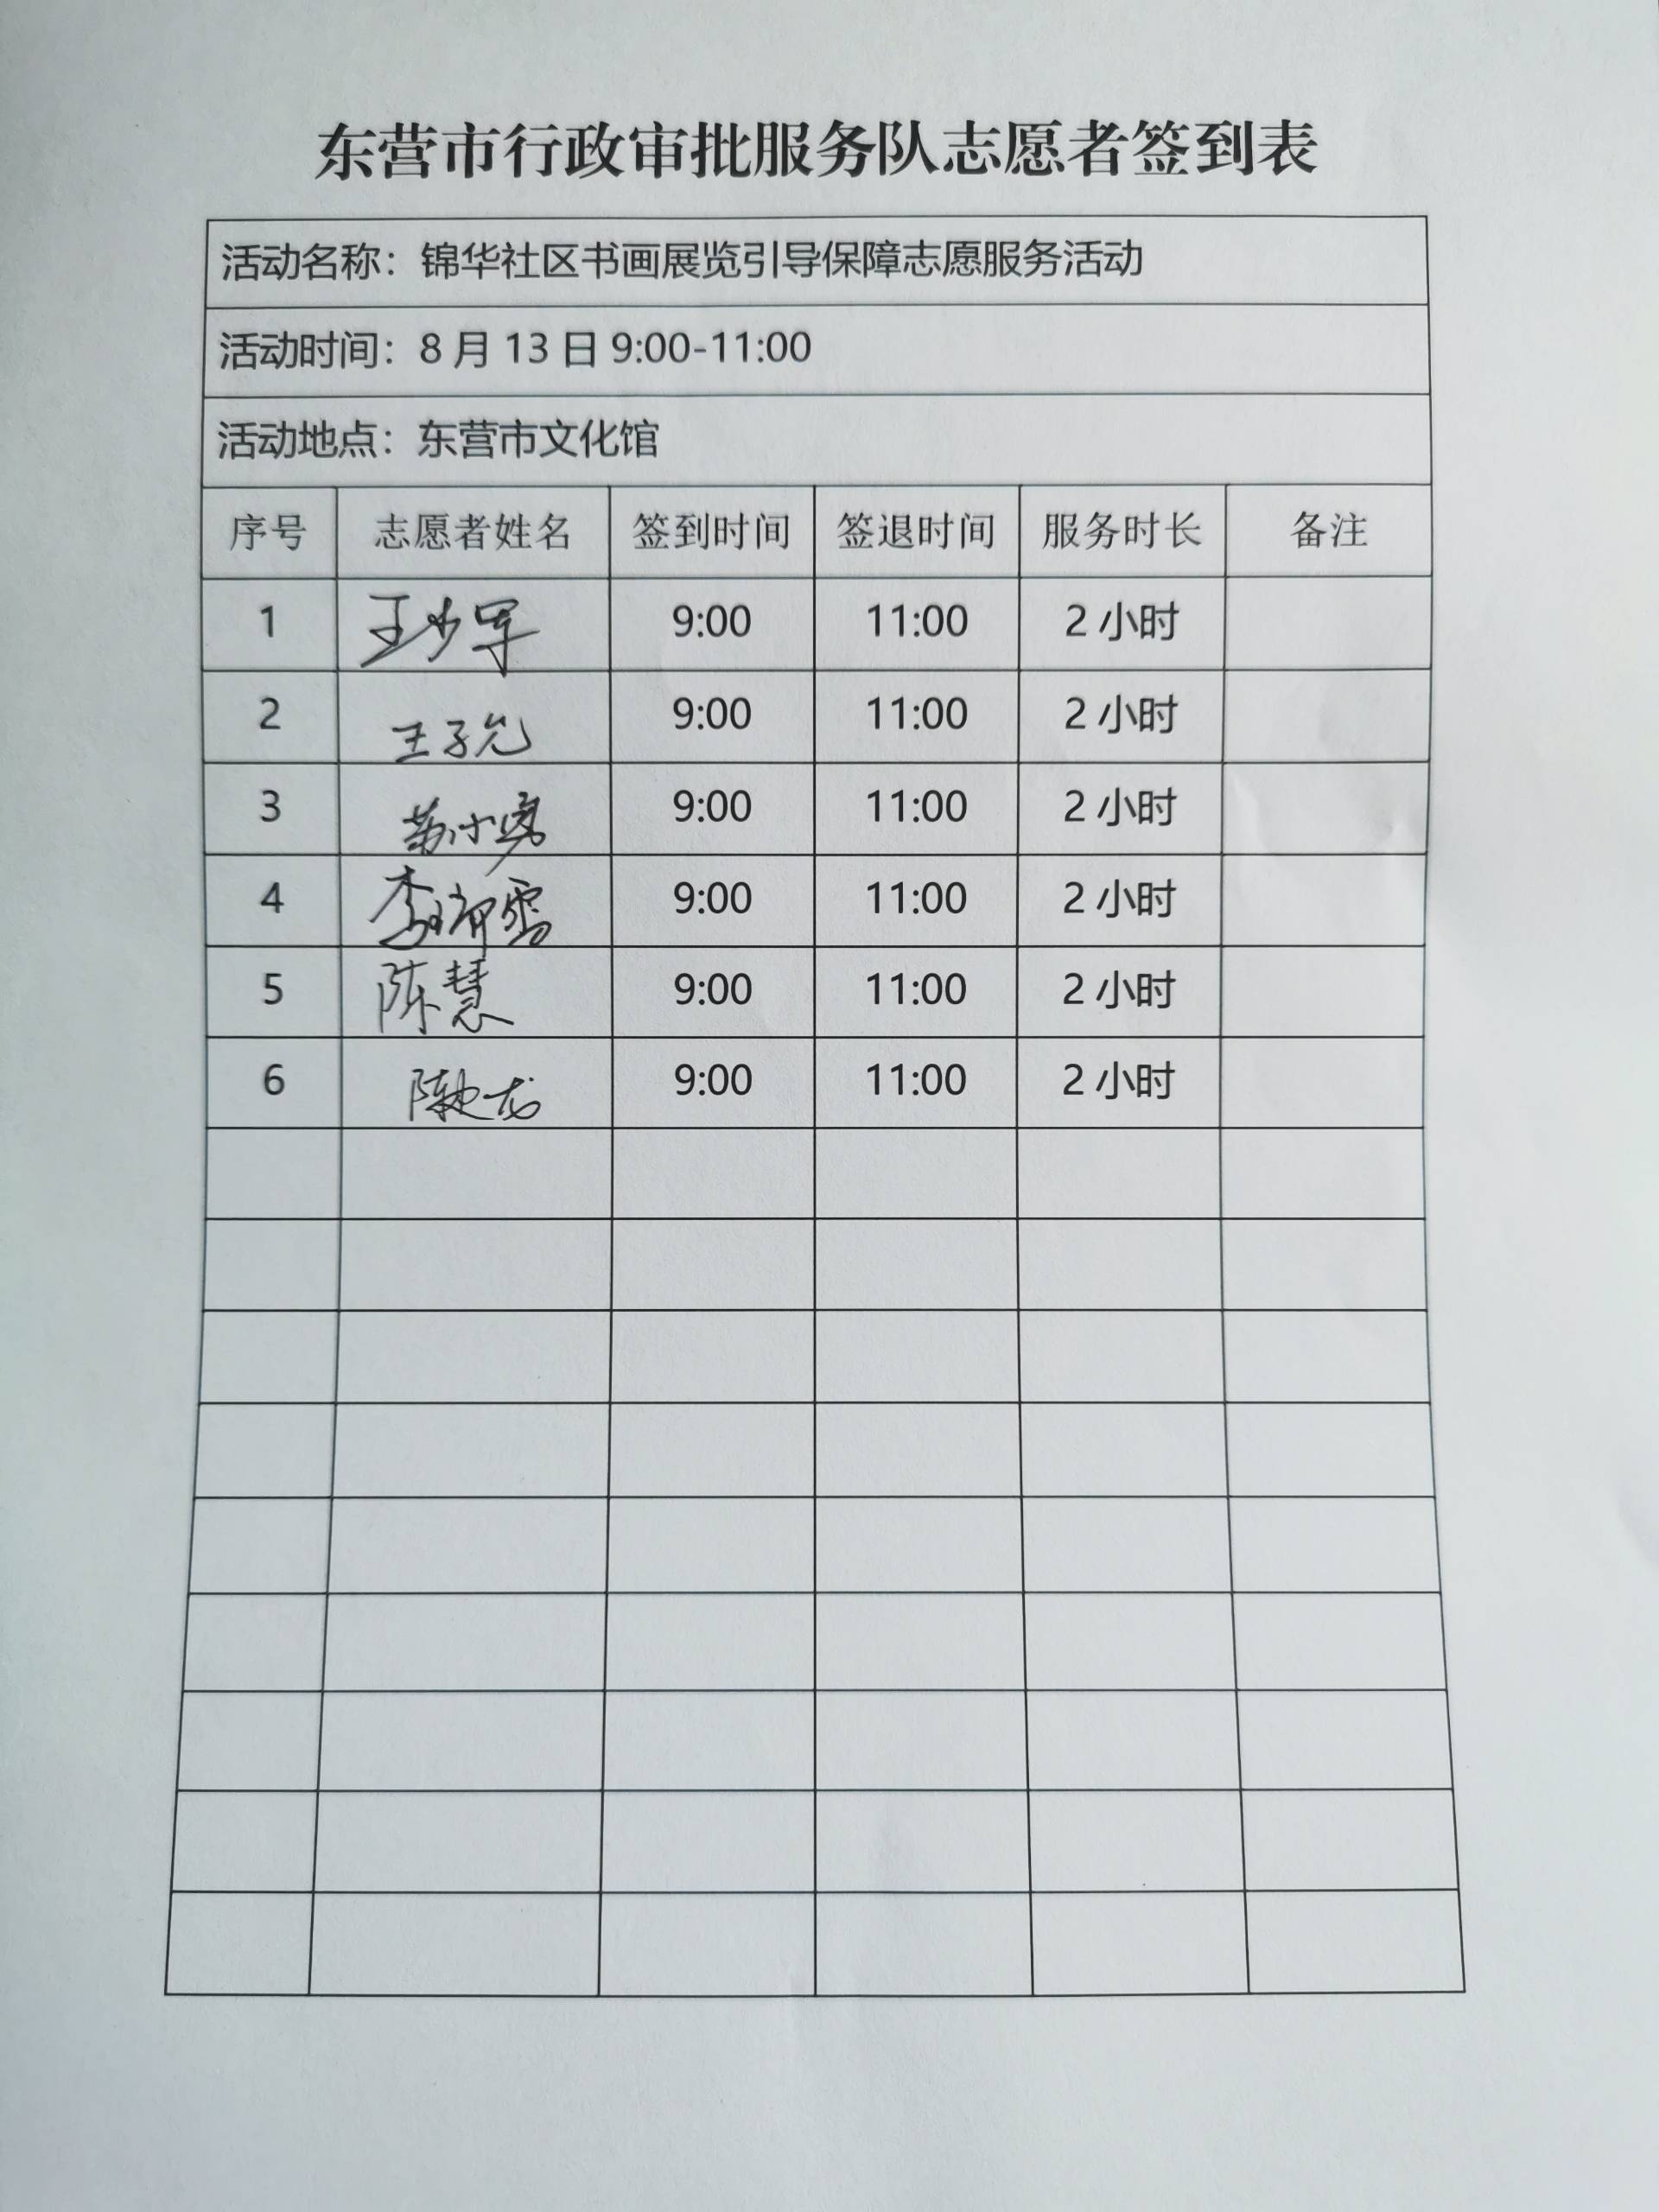 东营市行政审批服务队志愿者签到表
活动名称：锦华社区书画展览引导保障志愿服务活动
活动时间：8月13日9:00-11:00
活动地点：东营市文化馆
序号 志愿者姓名 签到时间 签退时间 服务时长 备注
1 王少军 9:00 11:00 2小时
2 王子允 9:00 11:00 2小时
3 9:00 11:00 2小时
4 李 9:00 11:00 2小时
5 陈慧 9:00 11:00 2小时
6 陈 龙 9:00 11:00 2小时